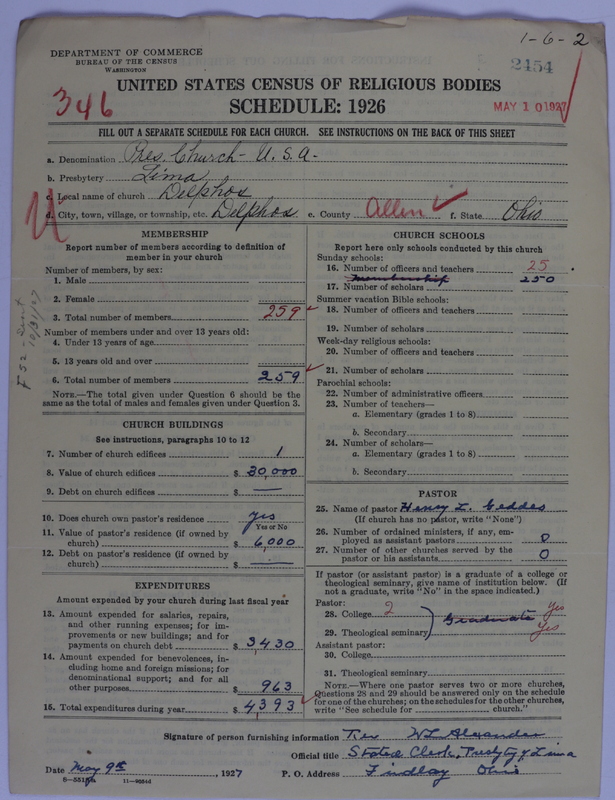 1-6-2
DEPARTMENT OF COMMERCE
BUREAU OF THE CENSUS
WASHINGTON
2454
346
UNITED STATES CENSUS OF RELIGIOUS BODIES
SCHEDULE: 1926
MAY 10 1927
FILL OUT A SEPARATE SCHEDULE FOR EACH CHURCH. SEE INSTRUCTIONS ON THE BACK OF THIS SHEET
a. Denomination Pres. Church - U.S.A.
b. Presbytery Lima
c. Local name of church Delphos
d. City, town, village, or township, etc. Delphos e. County Allen f. State Ohio
U
F52 - Sent 10/31/27
MEMBERSHIP
Report number of members according to definition of
member in your church
Number of members, by sex:
1. Male
2. Female
3. Total number of members 259
Number of members under and over 13 years old:
4. Under 13 years of age
5. 13 years old and over
6. Total number of members 259
NOTE.—The total given under Question 6 should be
same as the total of males and females given under Question 3.
CHURCH BUILDINGS
See instructions, paragraphs 10 to 12
7. Number of church edifices 1
8. Value of church edifices $ 30,000
9. Debt on church edifices $ —
10. Does church own pastor's residence yes
Yes or No
11. Value of pastor's residence (if owned by
church) $ 6,000
12. Debt on pastor's residence (if owned by
church) $ —
EXPENDITURES
Amount expended by your church during last fiscal year
13. Amount expended for salaries, repairs,
and other running expenses; for im-
provements or new buildings; and for
payments on church debt $ 3,430
14. Amount expended for benevolences, in-
cluding home and foreign missions; for
denominational support; and for all
other purposes $ 963
15. Total expenditures during year $ 4393
CHURCH SCHOOLS
Report here only schools conducted by this church
Sunday schools:
16. Number of officers and teachers 25
Membership
17. Number of scholars 250
Summer vacation Bible schools:
18. Number of officers and teachers
19. Number of scholars
Week-day religious schools:
20. Number of officers and teachers
21. Number of scholars
Parochial schools:
22. Number of administrative officers
23. Number of teachers—
a. Elementary (grades 1 to 8)
b. Secondary
24. Number of scholars—
a. Elementary (grades 1 to 8)
b. Secondary
PASTOR
25. Name of pastor Henry L. Geddes
(If church has no pastor, write "None")
26. Number of ordained ministers, if any, em-
ployed as assistant pastors 0
27. Number of other churches served by the
pastor or his assistants 0
If pastor (or assistant pastor) is a graduate of a college or
theological seminary, give name of institution below. (If
not a graduate, write "No" in the space indicated.)
Pastor:
28. College 2 Graduate yes
29. Theological seminary yes
Assistant pastor:
30. College
31. Theological seminary
NOTE.—Where one pastor serves two or more churches,
Questions 28 and 29 should be answered only on the schedule
for one of the churches; on the schedules for the other churches,
write "See schedule for church."
Signature of person furnishing information Rev W L Alexander
Official title Stated Clerk, Presbyty of Lima
Date May 9th, 1927 P. O. Address Findlay Ohio